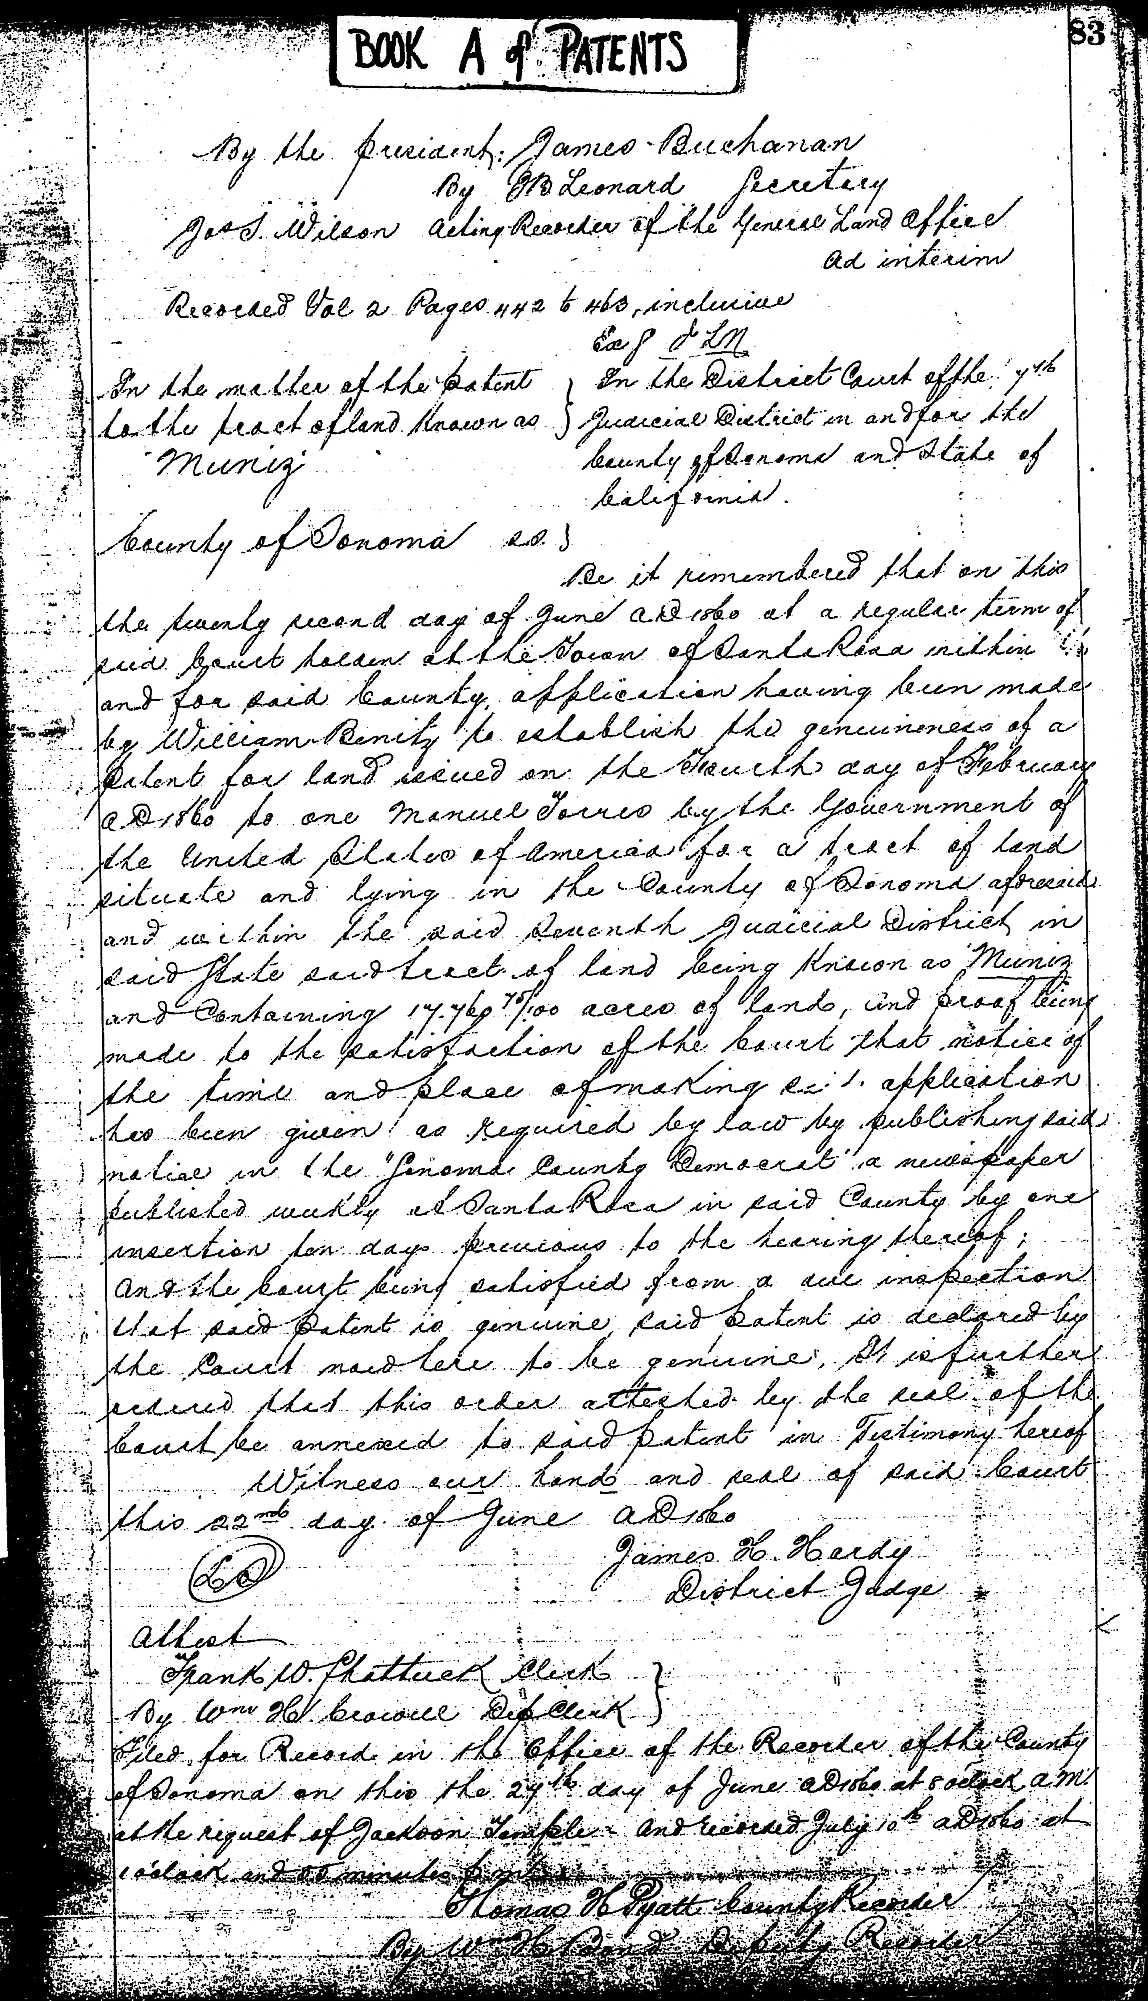 BOOK A of PATENTS
83
By the President: James Buchanan
By J B Leonard Secretary
Jos S. Wilson Acting Recorder of the General Land Office
Ad interim
Recorded Vol 2 Pages 442 to 463, inclusive
In the matter of the Patent
to the tract of land Known as
Muniz
In the District Court of the 7th
Judicial District in and for the
County of Sonoma and State of
California.
County of Sonoma ss.
Be it remembered that on this
the twenty second day of June AD 1860 at a regular term of
said Court holden at the Town of Santa Rosa within
and for said County, application having been made
by William Benitz to establish the genuineness of a
Patent for land issued on the Fourth day of February
AD 1860 to one Manuel Torres by the Government of
the United States of America for a tract of land
situate and lying in the County of Sonoma aforesaid
and within the said Seventh Judicial District in
said State said tract of land being Known as Muniz
and Containing 17.760 75/100 acres of land, and proof being
made to the satisfaction of the Court that notice of
the time and place of making said application
has been given as required by law by publishing said
notice in the "Sonoma County Democrat" a newspaper
published weekly at Santa Rosa in said County by one
insertion ten days previous to the hearing thereof;
And the Court being satisfied from a due inspection
that said Patent is genuine said Patent is declared by
the Court now here to be genuine, It is further
ordered that this order attested by the seal of the
Court be annexed to said Patent in Testimony hereof
Witness our hands and seal of said Court
this 22nd day of June AD 1860
James H. Hardy
District Judge
LS
Attest
Frank W. Shattuck Clerk
By Wm H. Crowell Dep Clerk
Filed for Record in the Office of the Recorder of the County
of Sonoma on this the 27th day of June AD 1860 at 8 oclock A.M.
at the request of Jackson Temple and recorded July 10th AD 1860 at
oclock and minutes
Thomas H Pyatt County Recorder
By Wm H. Bond Deputy Recorder